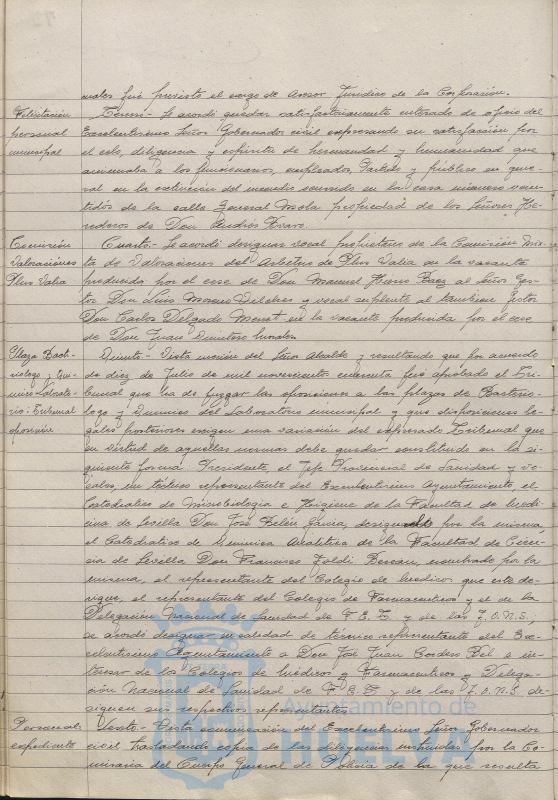 nales fué provisto el cargo de Asesor Jurídico de la Corporación.
Felicitación personal municipal
Tercero.- Se acordó quedar satisfactoriamente enterado de oficio del
Excelentísimo Señor Gobernador civil expresando su satisfacción por
el celo, diligencia y espíritu de hermandad y humanidad que
animaba a los funcionarios, empleados, Partido y público en gene-
ral en la extinción del incendio ocurrido en la casa número vein-
tidós de la calle General Mola propiedad de los Señores He-
rederos de Don
Comisión Valoraciones Plus Valia
Cuarto.- Se acordó designar vocal propietario de la Comisión Mix-
ta de Valoraciones del Arbitrio de Plus Valia en la vacante
producida por el cese de Don Manuel Baez al Señor Ges-
tor Don Luis Moreno y vocal suplente al también Gestor
Don Carlos Delgado en la vacante producida por el cese
de Don Juan Quintero
Plaza Bacte-
riologo y Quí-
mico Laborato-
rio. Tribunal
oposición
Quinto.- Vista moción del Señor Alcalde y resultando que por acuerdo
de diez de Julio de mil novecientos cuarenta fué aprobado el Tri-
bunal que ha de juzgar las oposiciones a las plazas de Bacterio-
logo y Químico del Laboratorio municipal y que disposiciones le-
gales posteriores exigen una variación del expresado Tribunal que
en virtud de aquellas normas debe quedar constituido en la si-
guiente forma: Presidente, el Jefe Provincial de Sanidad y vo-
cales, un técnico representante del Excelentísimo Ayuntamiento el
Catedrático de Microbiología e Higiene de la Facultad de Medi-
cina de Sevilla Don José García, designado por la misma
el Catedrático de Química Analítica de la Facultad de Cien-
cia de Sevilla Don Francisco nombrado por la
misma, el representante del Colegio de Médicos que este de-
signe, el representante del Colegio de Farmacéuticos y el de la
Delegación Nacional de Sanidad de F.E.T. y de las J.O.N.S.,
se acordó designar en calidad de técnico representante del Ex-
celentísimo Ayuntamiento a Don José Juan e in-
teresar de los Colegios de Médicos y Farmacéuticos y Delega-
ción Nacional de Sanidad de F.E.T. y de las J.O.N.S. de-
signen sus respectivos representantes.
Personal expediente
Sexto.- Vista comunicación del Excelentísimo Señor Gobernador
civil trasladando copia de las diligencias instruidas por la Co-
misaria del Cuerpo General de Policia de la que resulta
Ayuntamiento de